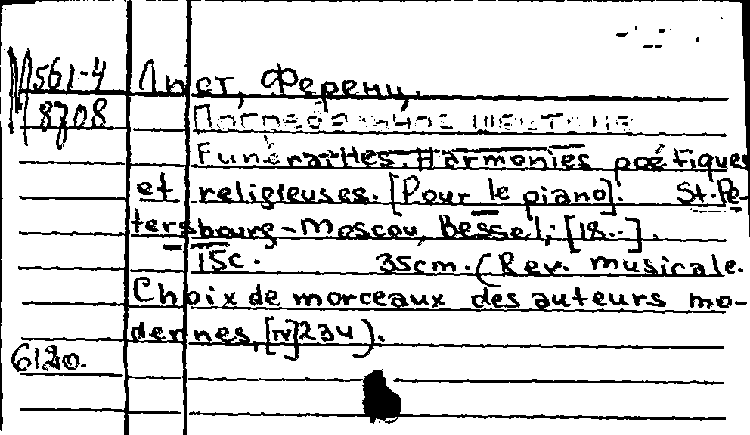 М561-4 Лист, Ференц.
8708 Погребальное шествие
Funérailles. Harmonies poétiques
et religieuses. [Pour le piano]. St.-Pe-
tersbourg-Moscou, Bessel, [18..].
15с. 35cm. (Rev. musicale.
Choix de morceaux des auteurs mo-
dernes, [N]234).
6120.